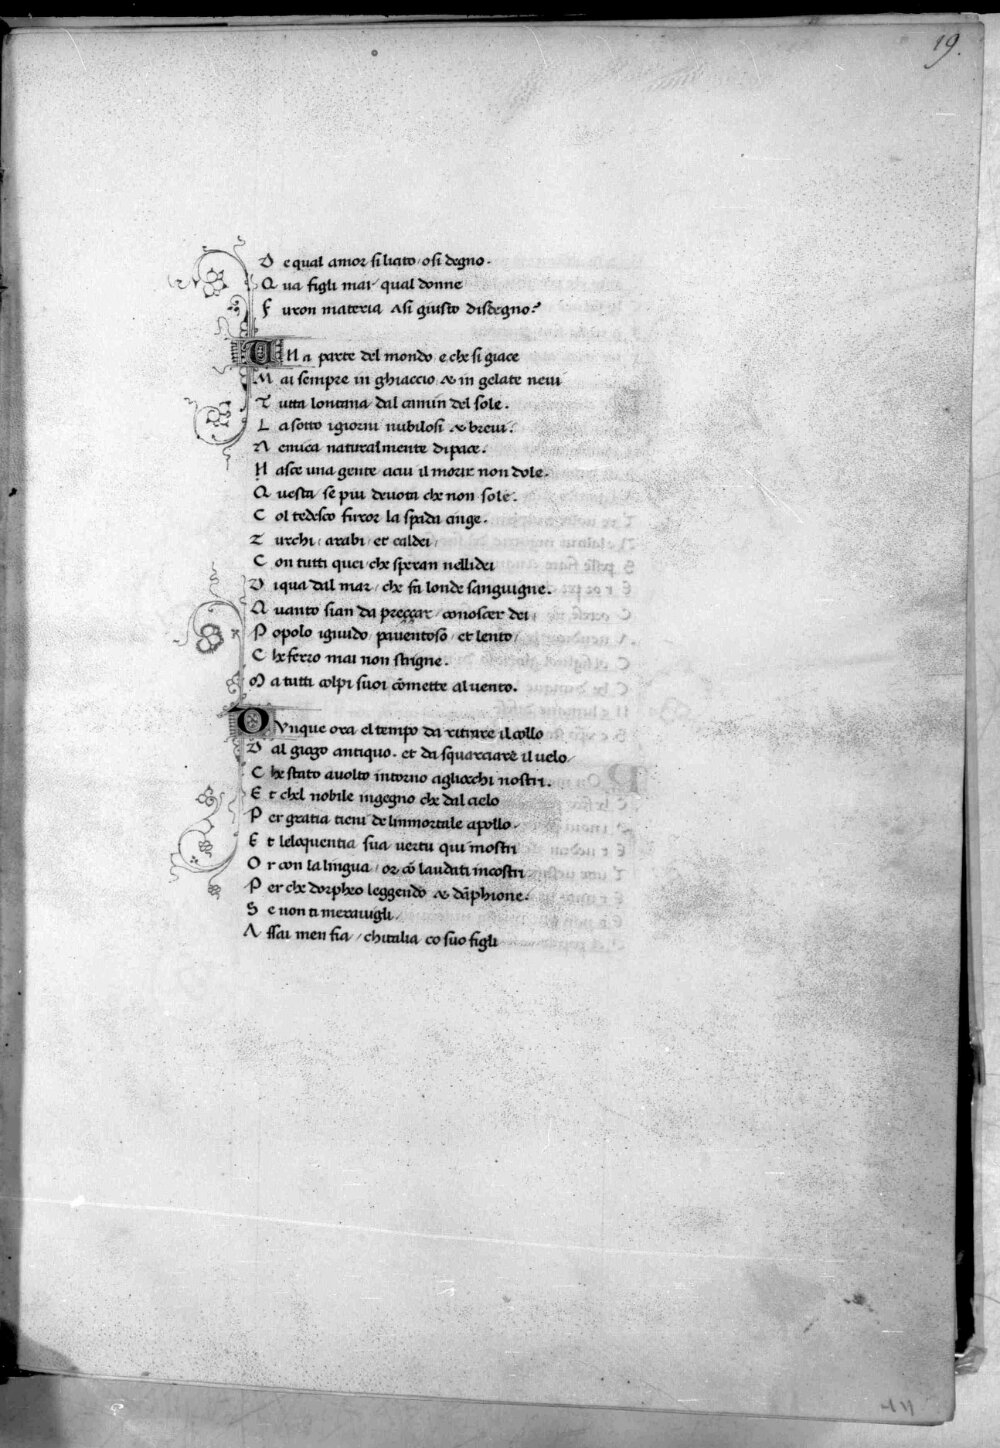 19.
D e qual amor si licito / o si degno.
Q ua figli mai / qual donne
F uron materia / a si giusto disdegno?
U Na parte del mondo e che si giace
M ai sempre in ghiaccio & in gelate neui
T utta lontana / dal camin del sole.
L a sotto i giorni nubilosi & breui.
N emica naturalmente di pace.
N asce una gente a cui il morir non dole.
Q uesta / se piu deuota che non sole.
C ol tedesco furor la spada cinge.
T urchi / arabi / et caldei /
C on tutti quei / che speran nelli dei
D i qua dal mar / che fa londe sanguigne.
Q uanto sian da preççar / conoscer dei /
P opolo ignudo / pauentoso / et lento /
C he ferro mai non strigne.
M a tutti colpi suoi cōmette al uento.
D Vnque ora el tempo da ritrare il collo
D al giogo antiquo. et da squarciare il uelo /
C he stato auolto intorno agliocchi nostri.
E t chel nobile ingegno che dal cielo
P er gratia tieni de linmortale apollo.
E t leloquentia sua uertu qui mostri
O r con la lingua / or cō laudati incostri
P er che dorpheo leggendo & dāphione.
S e non ti merauigli.
A ssai men fia / chitalia co suo figli